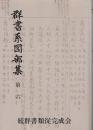 群書系図部集
第六
続群書類従完成会